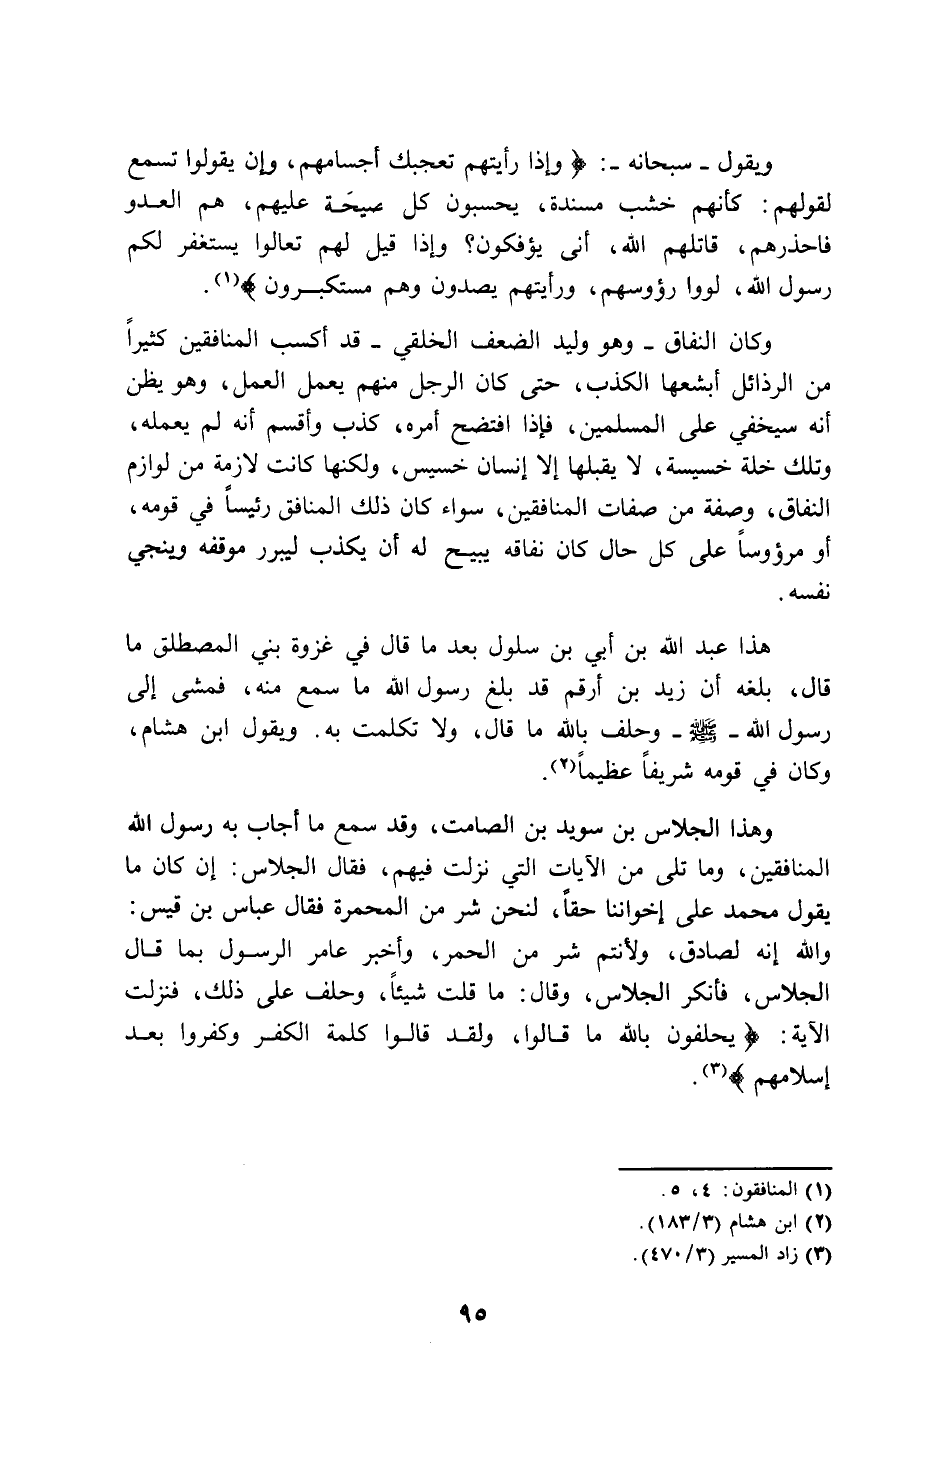 ويقول ـ سبحانه ـ: ﴿ وإذا رأيتهم تعجبك أجسامهم، وإن يقولوا تسمع
لقولهم: كأنهم خشب مسندة، يحسبون كل صيحَة عليهم، هم العدو
فاحذرهم، قاتلهم الله، أنى يؤفكون؟ وإذا قيل لهم تعالوا يستغفر لكم
رسول الله، لووا رؤوسهم، ورأيتهم يصدون وهم مستكبرون ﴾(١).
وكان النفاق ـ وهو وليد الضعف الخلقي ـ قد أكسب المنافقين كثيراً
من الرذائل أبشعها الكذب، حتى كان الرجل منهم يعمل العمل، وهو يظن
أنه سيخفي على المسلمين، فإذا افتضح أمره، كذب وأقسم أنه لم يعمله،
وتلك خلة خسيسة، لا يقبلها إلا إنسان خسيس، ولكنها كانت لازمة من لوازم
النفاق، وصفة من صفات المنافقين، سواء كان ذلك المنافق رئيساً في قومه،
أو مرؤوساً على كل حال كان نفاقه يبيح له أن يكذب ليبرر موقفه وينجي
نفسه.
هذا عبد الله بن أبي بن سلول بعد ما قال في غزوة بني المصطلق ما
قال، بلغه أن زيد بن أرقم قد بلغ رسول الله ما سمع منه، فمشى إلى
رسول الله ـ ﷺ ـ وحلف بالله ما قال، ولا تكلمت به. ويقول ابن هشام،
وكان في قومه شريفاً عظيماً(٢).
وهذا الجلاس بن سويد بن الصامت، وقد سمع ما أجاب به رسول الله
المنافقين، وما تلى من الآيات التي نزلت فيهم، فقال الجلاس: إن كان ما
يقول محمد على إخواننا حقاً، لنحن شر من المحمرة فقال عباس بن قيس:
والله إنه لصادق، ولأنتم شر من الحمر، وأخبر عامر الرسول بما قال
الجلاس، فأنكر الجلاس، وقال: ما قلت شيئاً، وحلف على ذلك، فنزلت
الآية: ﴿ يحلفون بالله ما قالوا، ولقد قالوا كلمة الكفر وكفروا بعد
إسلامهم ﴾(٣).
(١) المنافقون: ٤، ٥.
(٢) ابن هشام (١٨٣/٣).
(٣) زاد المسير (٤٧٠/٣).
٩٥